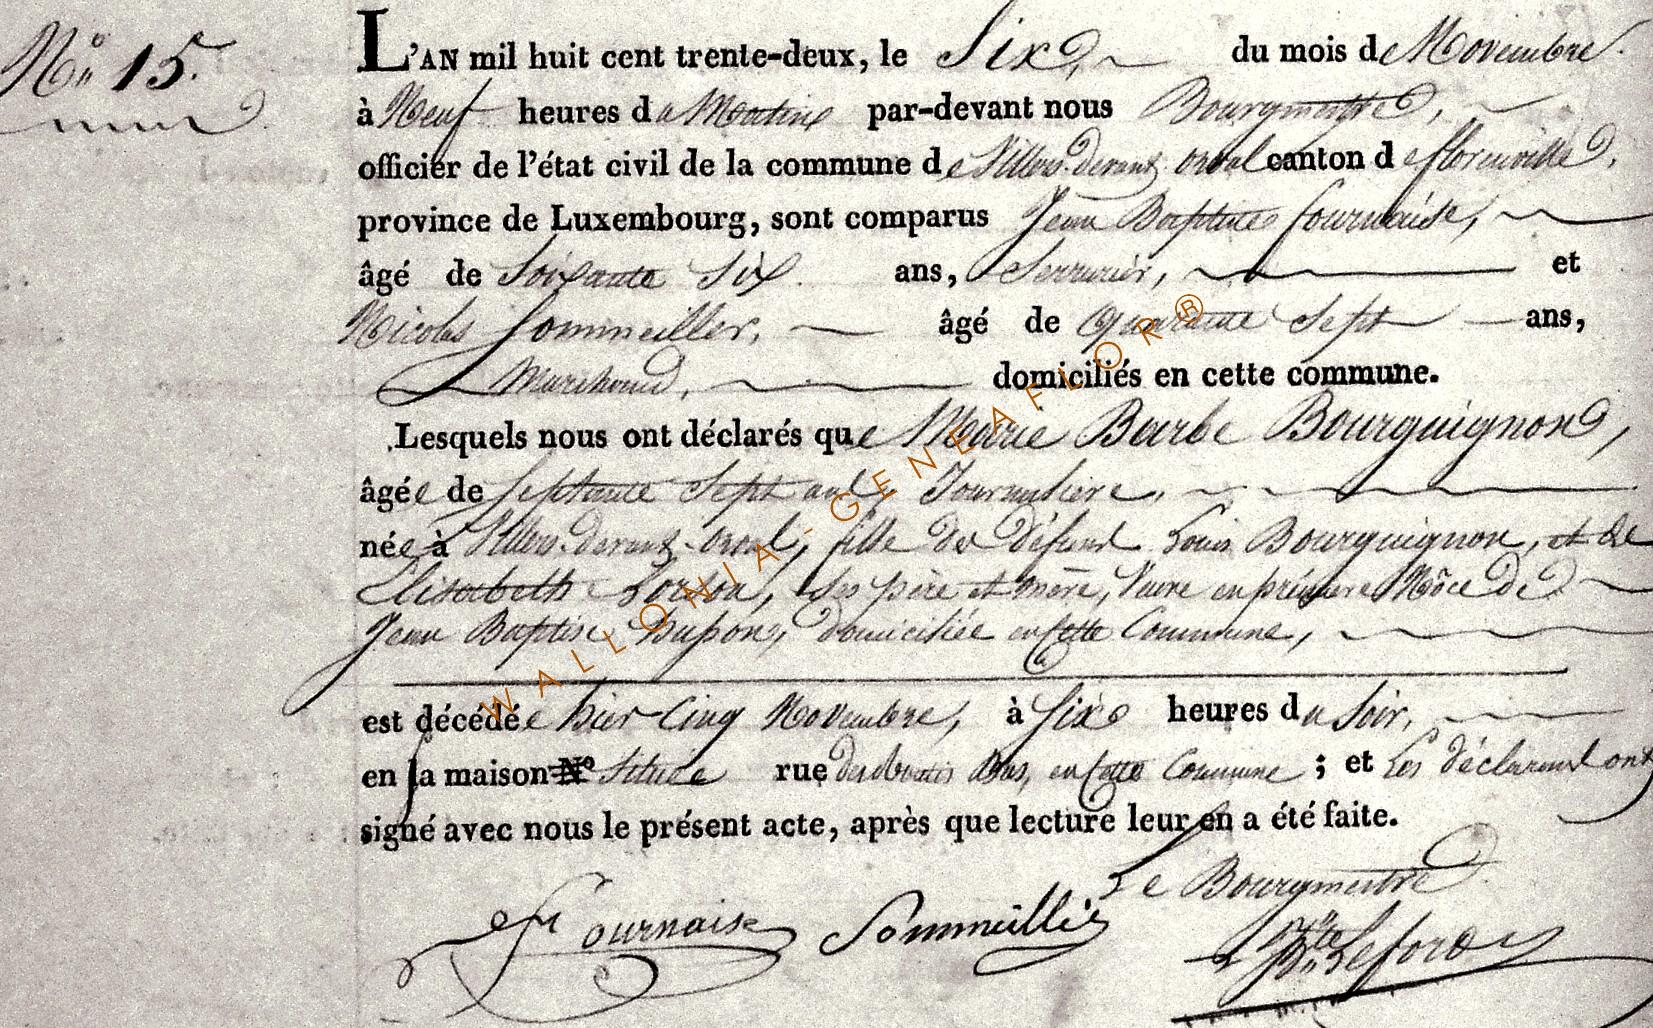 N° 15.
L'AN mil huit cent trente-deux, le Six, du mois de Novembre.
à Neuf heures du Matin par-devant nous Bourgmestre,
officier de l'état civil de la commune de Villers-devant-orval canton de florenville,
province de Luxembourg, sont comparus Jean Baptiste fournaise,
âgé de Soixante Six ans, Serrurier, et
Nicolas Sommeiller, âgé de Quarante Sept ans,
Marchand, domiciliés en cette commune.
Lesquels nous ont déclarés que Marie Barbe Bourguignon,
âgée de Septante Sept ans, Journalière,
née à Villers-devant-orval, fille de défunt Louis Bourguignon, et de
Elisabeth ses père et mère, Veuve en première Nôce de
Jean Baptiste Dupon, domiciliée en Cette Commune,
est décédée hier Cinq Novembre, à Six heures du Soir,
en la maison N° Située rue Bas, en Cette Commune ; et Les déclarant ont
signé avec nous le présent acte, après que lecture leur en a été faite.
Le Bourgmestre
Fournaise Sommeillier
WALLONIA-GENEAFLOR®